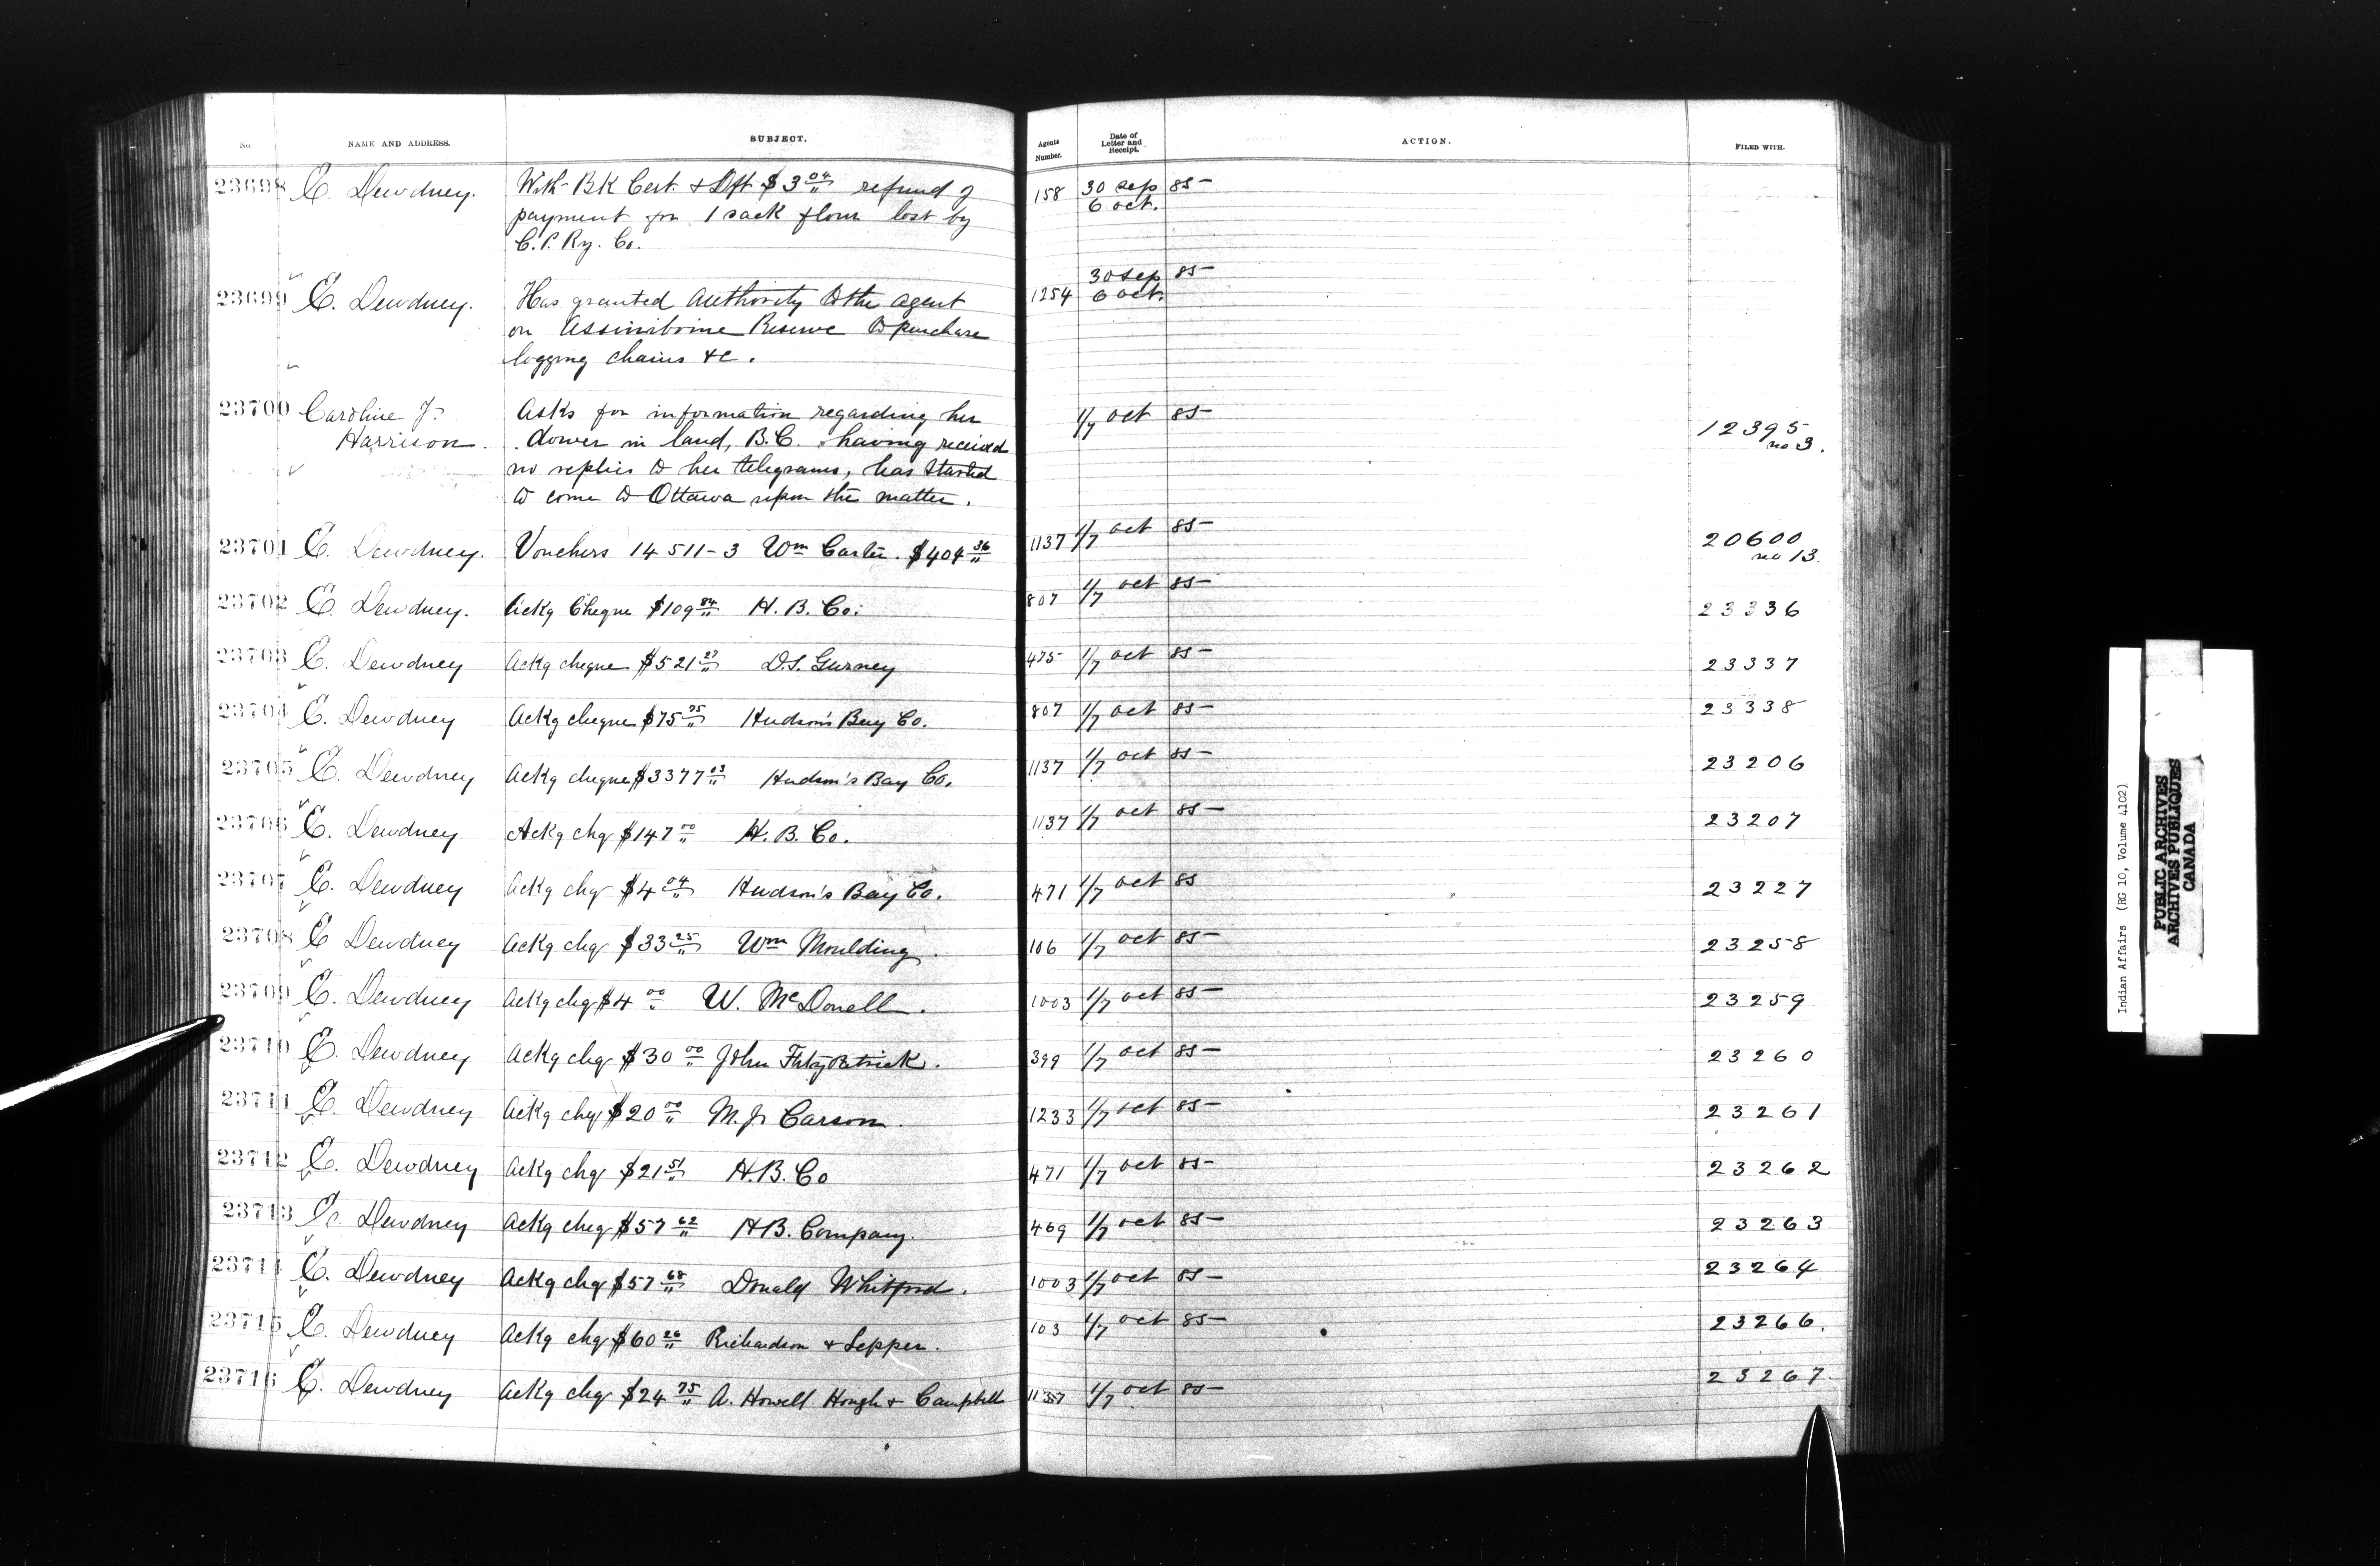 No. NAME AND ADDRESS. SUBJECT. Agents Number. Date of Letter and Receipt. ACTION. FILED WITH.
23698 E. Dewdney. With BK Cert. & Dft $3 04/" refund of 158 30 sep 85
payment for 1 sack flour lost by 6 oct.
C. P. Ry. Co.
23699 E. Dewdney. Has granted authority to the agent 1254 30 sep 85
on Assiniboine Reserve to purchase 6 oct.
logging chains &c.
23700 Caroline J. Asks for information regarding her 1/7 oct 85 12395
Harrison. dower in land, B.C. having received no 3.
no replies to her telegrams, has started
to come to Ottawa upon the matter.
23701 E. Dewdney. Vouchers 14511-3 Wm Carter. $404 36/" 1137 1/7 oct 85 20600
no 13.
23702 E. Dewdney. Ackg Cheque $109 84/" H. B. Co. 807 1/7 oct 85 23336
23703 E. Dewdney Ackg cheque $521 27/" D.S. Gurney 475 1/7 oct 85 23337
23704 E. Dewdney Ackg cheque $75 75/" Hudson's Bay Co. 807 1/7 oct 85 23338
23705 E. Dewdney Ackg cheque $3377 03/" Hudson's Bay Co. 1137 1/7 oct 85 23206
23706 E. Dewdney Ackg chq $147 00/" H. B. Co. 1137 1/7 oct 85 23207
23707 E. Dewdney Ackg chq $4 04/" Hudson's Bay Co. 471 1/7 oct 85 23227
23708 E Dewdney Ackg chq $33 25/" Wm Moulding. 106 1/7 oct 85 23258
23709 E. Dewdney Ackg chq $4 00/" W. McDonell. 1003 1/7 oct 85 23259
23710 E. Dewdney Ackg chq $30 00/" John Fitzpatrick. 399 1/7 oct 85 23260
23711 E. Dewdney Ackg chq $20 00/" M. J. Carson. 1233 1/7 oct 85 23261
23712 E. Dewdney Ackg chq $21 51/" H. B. Co 471 1/7 oct 85 23262
23713 E. Dewdney Ackg cheq $57 62/" H B. Company. 469 1/7 oct 85 23263
23714 E. Dewdney Ackg chq $57 68/" Donald Whitford. 1003 1/7 oct 85 23264
23715 E. Dewdney Ackg chq $60 26/" Richardson & Lepper. 103 1/7 oct 85 23266.
23716 E. Dewdney Ackg chq $24 75/" A. Howell Hough & Campbell 1137 1/7 oct 85 23267.
Indian Affairs (RG 10, Volume 4102)
PUBLIC ARCHIVES
ARCHIVES PUBLIQUES
CANADA